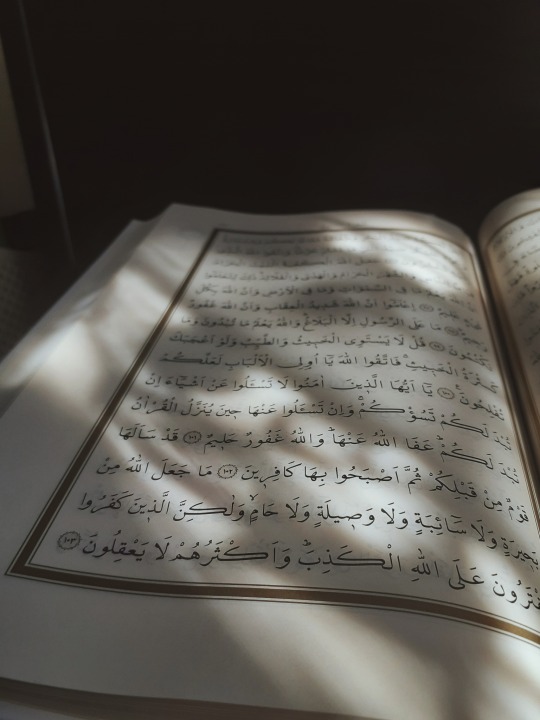 الْحَرَامَ وَالْهَدْيَ وَالْقَلَٓائِدَ ذٰلِكَ لِتَعْلَمُٓوا
مَا فِي السَّمٰوَاتِ وَمَا فِي الْاَرْضِ وَاَنَّ اللّٰهَ بِكُلِّ
شَيْءٍ عَلِيمٌ اِعْلَمُٓوا اَنَّ اللّٰهَ شَدِيدُ الْعِقَابِ وَاَنَّ اللّٰهَ غَفُورٌ
رَحِيمٌ مَا عَلَى الرَّسُولِ اِلَّا الْبَلَاغُ وَاللّٰهُ يَعْلَمُ مَا تُبْدُونَ وَمَا
تَكْتُمُونَ قُلْ لَا يَسْتَوِي الْخَبِيثُ وَالطَّيِّبُ وَلَوْ اَعْجَبَكَ
كَثْرَةُ الْخَبِيثِ فَاتَّقُوا اللّٰهَ يَٓا اُو۬لِي الْاَلْبَابِ لَعَلَّكُمْ
تُفْلِحُونَ ١٠٠ يَٓا اَيُّهَا الَّذِينَ اٰمَنُوا لَا تَسْـَٔلُوا عَنْ اَشْيَٓاءَ اِنْ
تُبْدَ لَكُمْ تَسُؤْكُمْ وَاِنْ تَسْـَٔلُوا عَنْهَا حِينَ يُنَزَّلُ الْقُرْاٰنُ
تُبْدَ لَكُمْ عَفَا اللّٰهُ عَنْهَا وَاللّٰهُ غَفُورٌ حَلِيمٌ ١٠١ قَدْ سَاَلَهَا
قَوْمٌ مِنْ قَبْلِكُمْ ثُمَّ اَصْبَحُوا بِهَا كَافِرِينَ ١٠٢ مَا جَعَلَ اللّٰهُ مِنْ
بَحِيرَةٍ وَلَا سَٓائِبَةٍ وَلَا وَصِيلَةٍ وَلَا حَامٍ وَلٰكِنَّ الَّذِينَ كَفَرُوا
يَفْتَرُونَ عَلَى اللّٰهِ الْكَذِبَ وَاَكْثَرُهُمْ لَا يَعْقِلُونَ ١٠٣